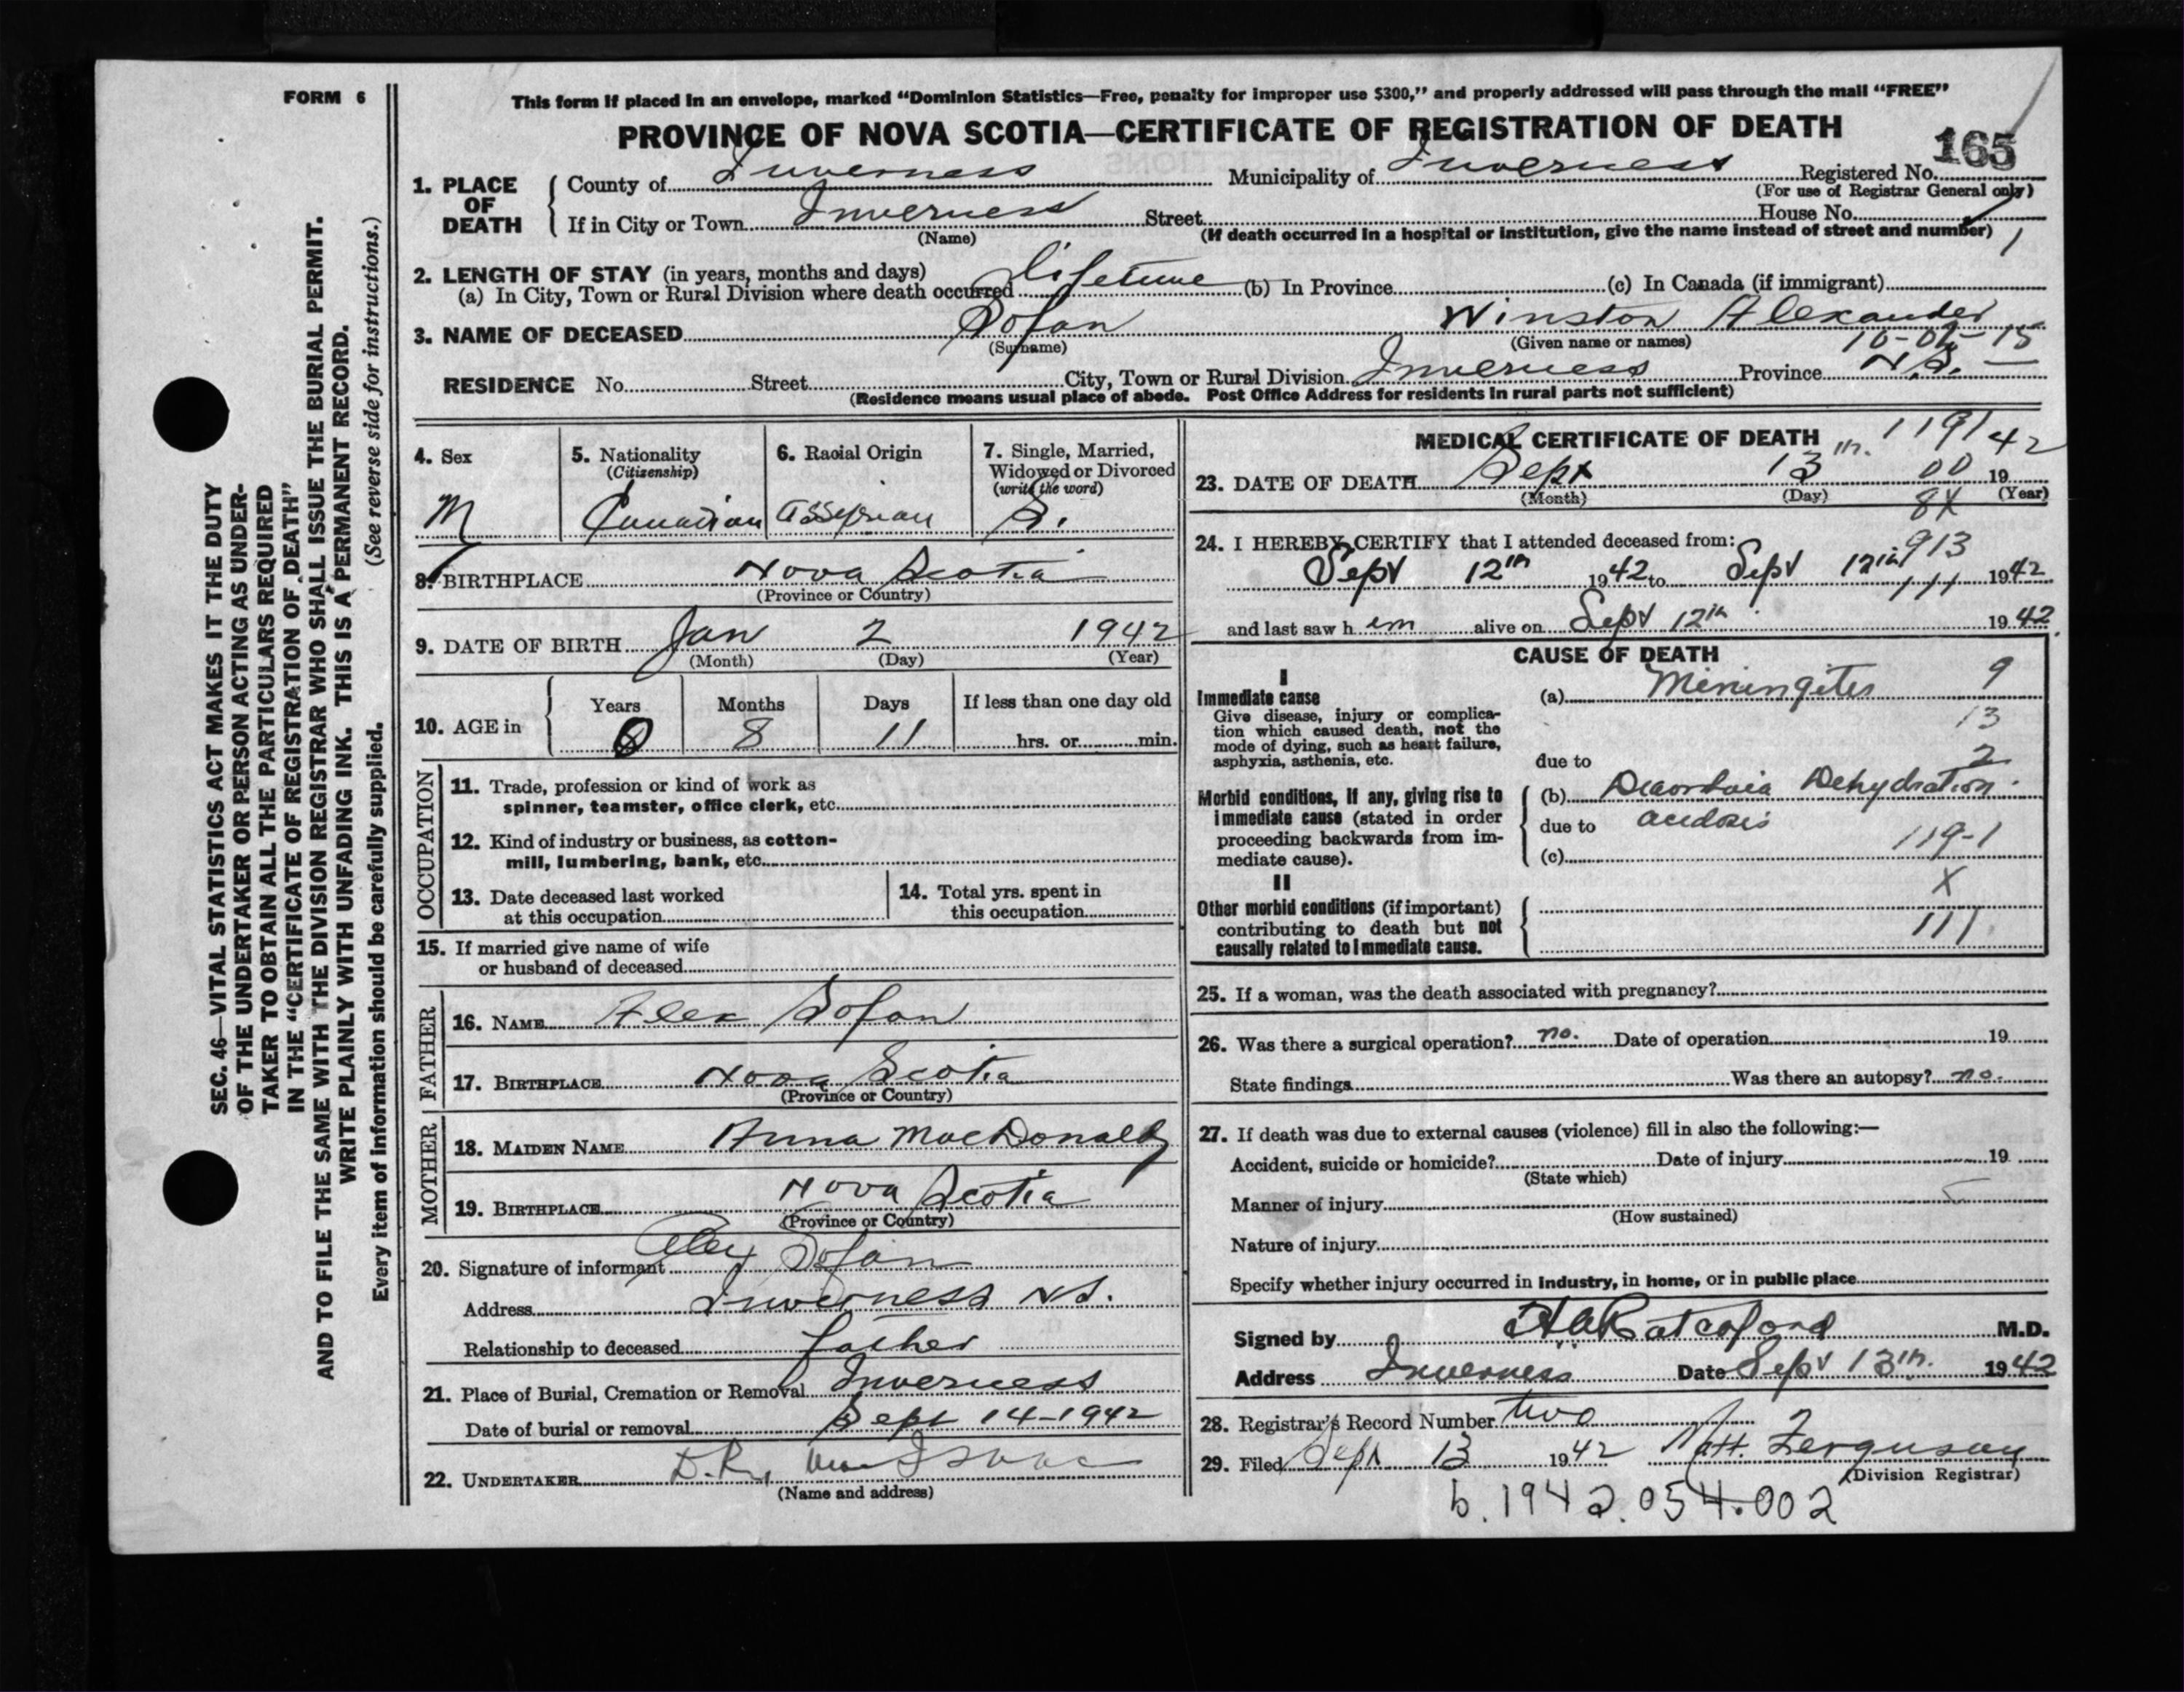 FORM 6
This form if placed in an envelope, marked “Dominion Statistics—Free, penalty for improper use $300,” and properly addressed will pass through the mail “FREE”
PROVINCE OF NOVA SCOTIA—CERTIFICATE OF REGISTRATION OF DEATH
165
1. PLACE OF DEATH
County of Inverness Municipality of Inverness Registered No.
(For use of Registrar General only)
If in City or Town Inverness Street House No.
(Name) (If death occurred in a hospital or institution, give the name instead of street and number)
2. LENGTH OF STAY (in years, months and days)
(a) In City, Town or Rural Division where death occurred lifetime (b) In Province (c) In Canada (if immigrant)
3. NAME OF DECEASED Sofan Winston Alexander
(Surname) (Given name or names)
RESIDENCE No. Street City, Town or Rural Division Inverness Province N.S.
(Residence means usual place of abode. Post Office Address for residents in rural parts not sufficient)
SEC. 46—VITAL STATISTICS ACT MAKES IT THE DUTY
OF THE UNDERTAKER OR PERSON ACTING AS UNDER-
TAKER TO OBTAIN ALL THE PARTICULARS REQUIRED
IN THE “CERTIFICATE OF REGISTRATION OF DEATH”
AND TO FILE THE SAME WITH THE DIVISION REGISTRAR WHO SHALL ISSUE THE BURIAL PERMIT.
WRITE PLAINLY WITH UNFADING INK. THIS IS A PERMANENT RECORD.
Every item of information should be carefully supplied. (See reverse side for instructions.)
4. Sex
M
5. Nationality
(Citizenship)
Canadian
6. Racial Origin
Assyrian
7. Single, Married,
Widowed or Divorced
(write the word)
S.
8. BIRTHPLACE Nova Scotia
(Province or Country)
9. DATE OF BIRTH Jan 2 1942
(Month) (Day) (Year)
10. AGE in
Years Months Days If less than one day old
0 8 11 hrs. or min.
OCCUPATION
11. Trade, profession or kind of work as
spinner, teamster, office clerk, etc.
12. Kind of industry or business, as cotton-
mill, lumbering, bank, etc.
13. Date deceased last worked
at this occupation
14. Total yrs. spent in
this occupation
15. If married give name of wife
or husband of deceased
FATHER
16. NAME Alex Sofan
17. BIRTHPLACE Nova Scotia
(Province or Country)
MOTHER
18. MAIDEN NAME Anna MacDonald
19. BIRTHPLACE Nova Scotia
(Province or Country)
20. Signature of informant Alex Sofan
Address Inverness N.S.
Relationship to deceased father
21. Place of Burial, Cremation or Removal Inverness
Date of burial or removal Sept 14-1942
22. UNDERTAKER D.R.
(Name and address)
MEDICAL CERTIFICATE OF DEATH
1191
23. DATE OF DEATH Sept 13th. 00 1942
(Month) (Day) (Year)
24. I HEREBY CERTIFY that I attended deceased from:
913
Sept 12th 1942 to Sept 12th 1942
111
and last saw him alive on Sept 12th 1942
CAUSE OF DEATH
I
Immediate cause
Give disease, injury or complica-
tion which caused death, not the
mode of dying, such as heart failure,
asphyxia, asthenia, etc.
(a) Meningitis 9
13
2
due to
Morbid conditions, if any, giving rise to
immediate cause (stated in order
proceeding backwards from im-
mediate cause).
(b) Diaorhoia Dehydration.
due to acidosis
119-1
(c)
II
X
Other morbid conditions (if important)
contributing to death but not
causally related to immediate cause.
111
25. If a woman, was the death associated with pregnancy?
26. Was there a surgical operation? no. Date of operation 19
State findings Was there an autopsy? no.
27. If death was due to external causes (violence) fill in also the following:—
Accident, suicide or homicide? Date of injury 19
(State which)
Manner of injury
(How sustained)
Nature of injury
Specify whether injury occurred in Industry, in home, or in public place
Signed by Ratchford M.D.
Address Inverness Date Sept 13th. 1942
28. Registrar's Record Number two 2
29. Filed Sept 13 1942 Ferguson
(Division Registrar)
b.1942.054.002